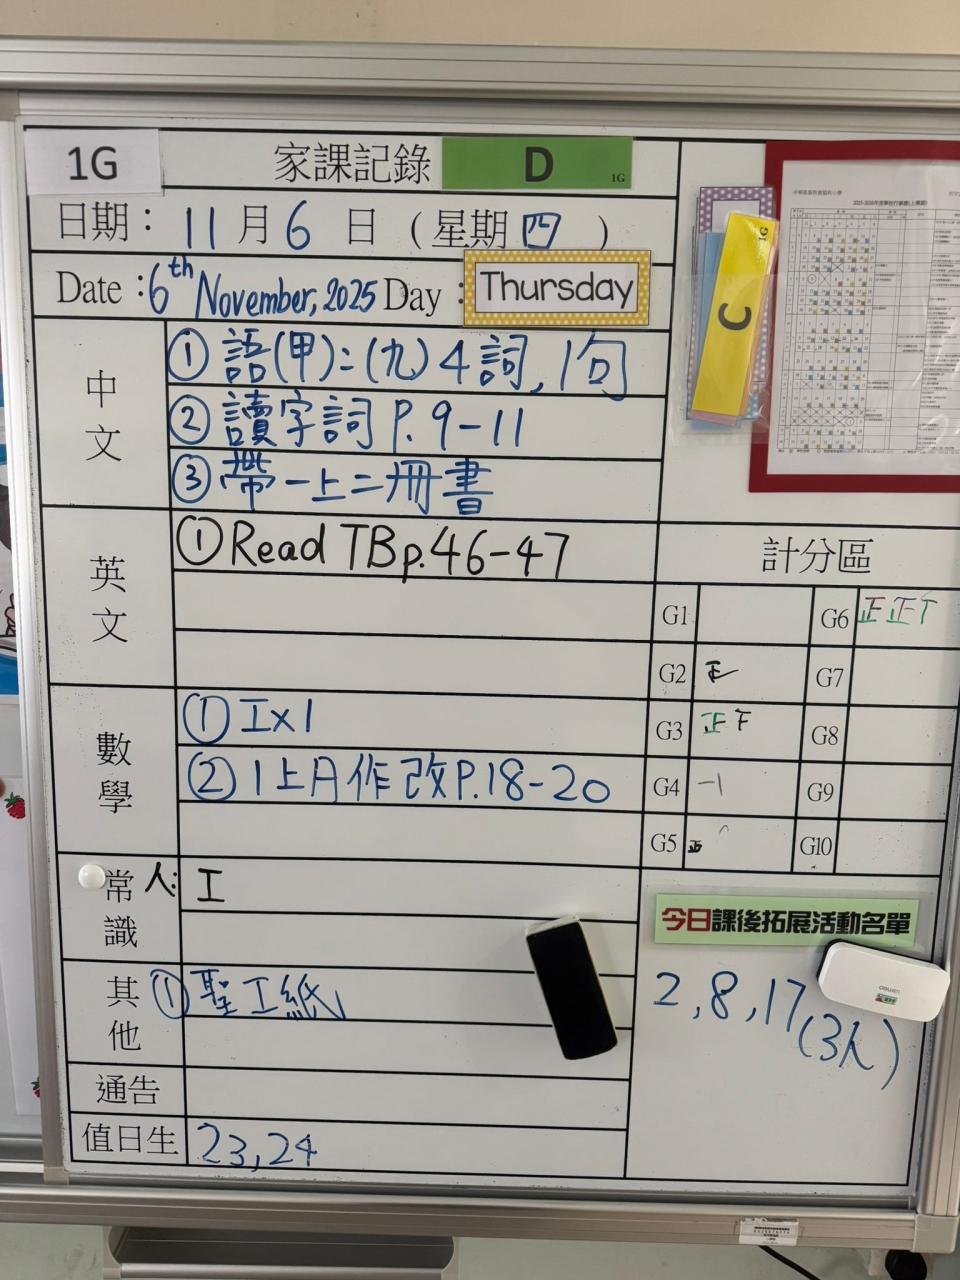 1G
家課記錄 D 1G
日期：11月6日（星期四）
Date：6th November, 2025 Day：Thursday
中文
①語(甲)：(九) 4詞, 1句
②讀字詞 P. 9-11
③帶一上二冊書
英文
①Read TB p.46-47
數學
①工x1
②1上A作改P.18-20
常識 人:工
其他
①聖工紙1
通告
值日生 23, 24
C 1G
2025-2026年度學校行事曆(上學期)
計分區
G1 G6 正正丅
G2 正 G7
G3 正下 G8
G4 -1 G9
G5 正 G10
今日課後拓展活動名單
2, 8, 17 (3人)